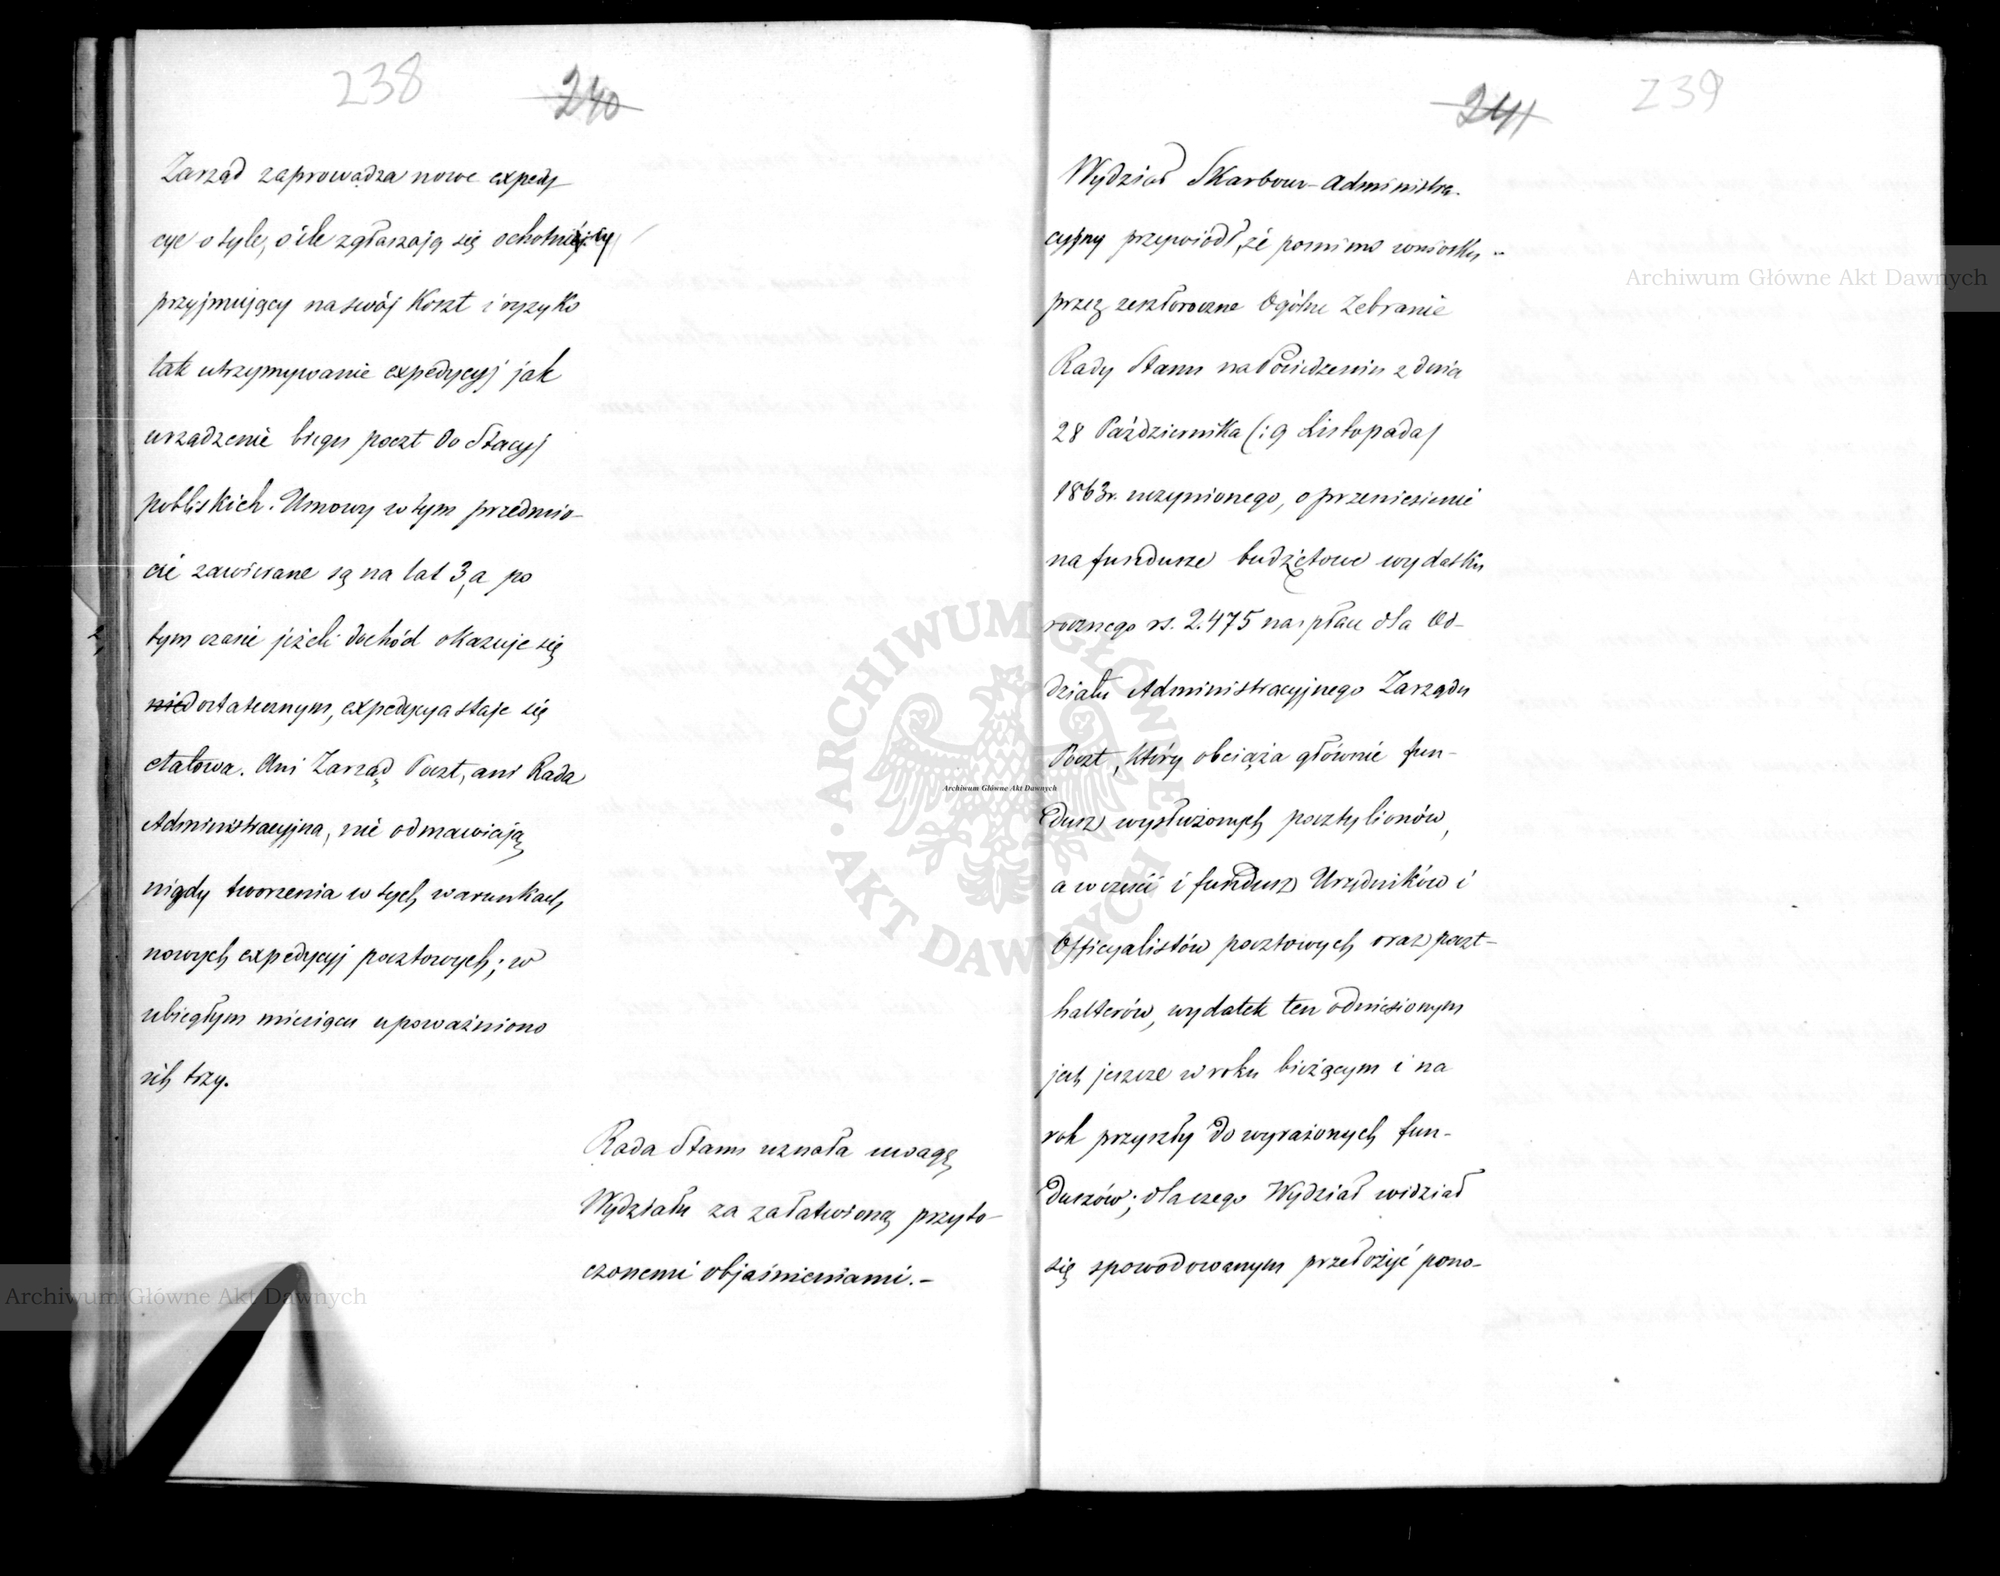 238
240
Zarząd zaprowadza nowe expedy
cye o tyle, o ile zgłaszają się ochotnicy
przyjmujący na swój koszt i ryzyko
tak utrzymywanie expedycyj jak
urządzenie biegu poczt do Stacyj
pobliskich. Umowy w tym przedmio-
cie zawierane są na lat 3, a po
tym czasie jeżeli dochód okazuje się
niedostatecznym, expedycya staje się
etatowa. Ani Zarząd Poczt, ani Rada
Administracyjna, nie odmawiają
nigdy tworzenia w tych warunkach
nowych expedycyj pocztowych; w
ubiegłym miesiącu upoważniono
ich trzy.
Rada Stanu uznała uwagę
Wydziału za załatwioną przyto-
czonemi objaśnieniami.-
241
239
Wydział Skarbowo-Administra-
cyjny przywiódł, że pomimo wniosku
przez zeszłoroczne Ogólne Zebranie
Rady Stanu na Posiedzeniu z dnia
28 Października (: 9 Listopada)
1863 r. uczynionego, o przeniesienie
na fundusze budżetowe wydatku
rocznego rs. 2.475 na płace dla Od-
działu Administracyjnego Zarządu
Poczt, który obciąża głównie fun-
dusz wysłużonych pocztylionów,
a w części i fundusz Urzędników i
Officyalistów pocztowych oraz poczt-
halterów, wydatek ten odniesionym
jest jeszcze w roku bieżącym i na
rok przyszły do wyrażonych fun-
duszów; dlaczego Wydział widział
się spowodowanym przełożyć pono-
Archiwum Główne Akt Dawnych
ARCHIWUM GŁÓWNE · AKT DAWNYCH
Archiwum Główne Akt Dawnych
Archiwum Główne Akt Dawnych